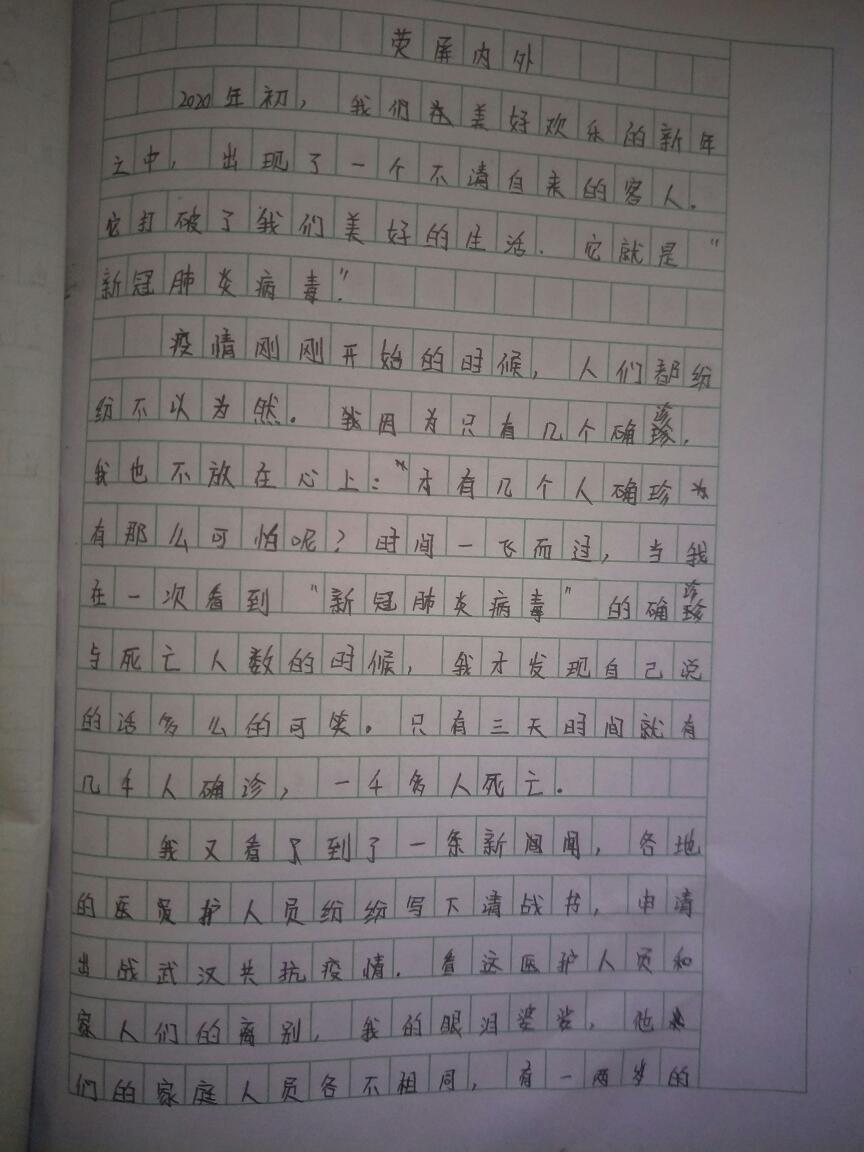 荧屏内外
2020年初，我们在美好欢乐的新年
之中，出现了一个不请自来的客人．
它打破了我们美好的生活．它就是“
新冠肺炎病毒”．
疫情刚刚开始的时候，人们都纷
纷不以为然。我因为只有几个确诊，
我也不放在心上：“才有几个人确珍
有那么可怕呢？时间一飞而过，当我
在一次看到“新冠肺炎病毒”的确诊
与死亡人数的时候，我才发现自己说
的话多么的可笑。只有三天时间就有
几千人确诊，一千多人死亡。
我又看到了一条新闻，各地
的医护人员纷纷写下请战书，申请
出战武汉共抗疫情．看这医护人员和
家人们的离别，我的眼泪婆娑，他
们的家庭人员各不相同，有一两岁的